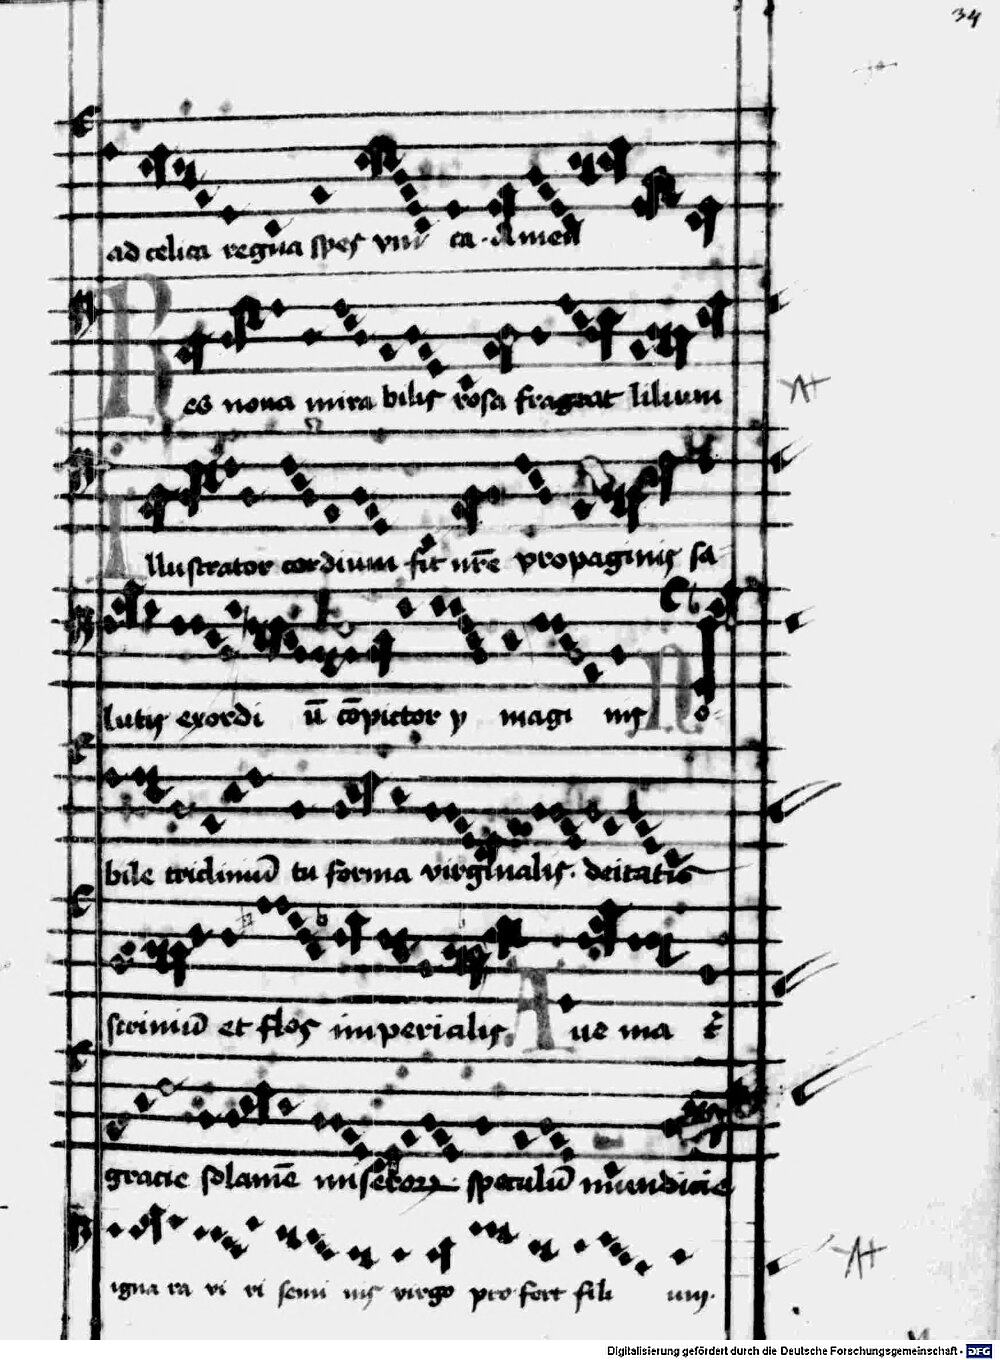 34
ad celica regna spes vni ca. Amen
Res noua mira bilis rosa fragrat lilium
Illustrator cordium fit nr̄e propaginis sa
lutis exordi ū cōpictor y magi nis No
bile tricliniū tu forma virginalis. deitatis
scriniū et flos imperialis. Aue ma
gracie solamē miseroꝝ speculū mundicie
igna ra vi ri semi nis virgo pro fert fili um.
Digitalisierung gefördert durch die Deutsche Forschungsgemeinschaft - DFG